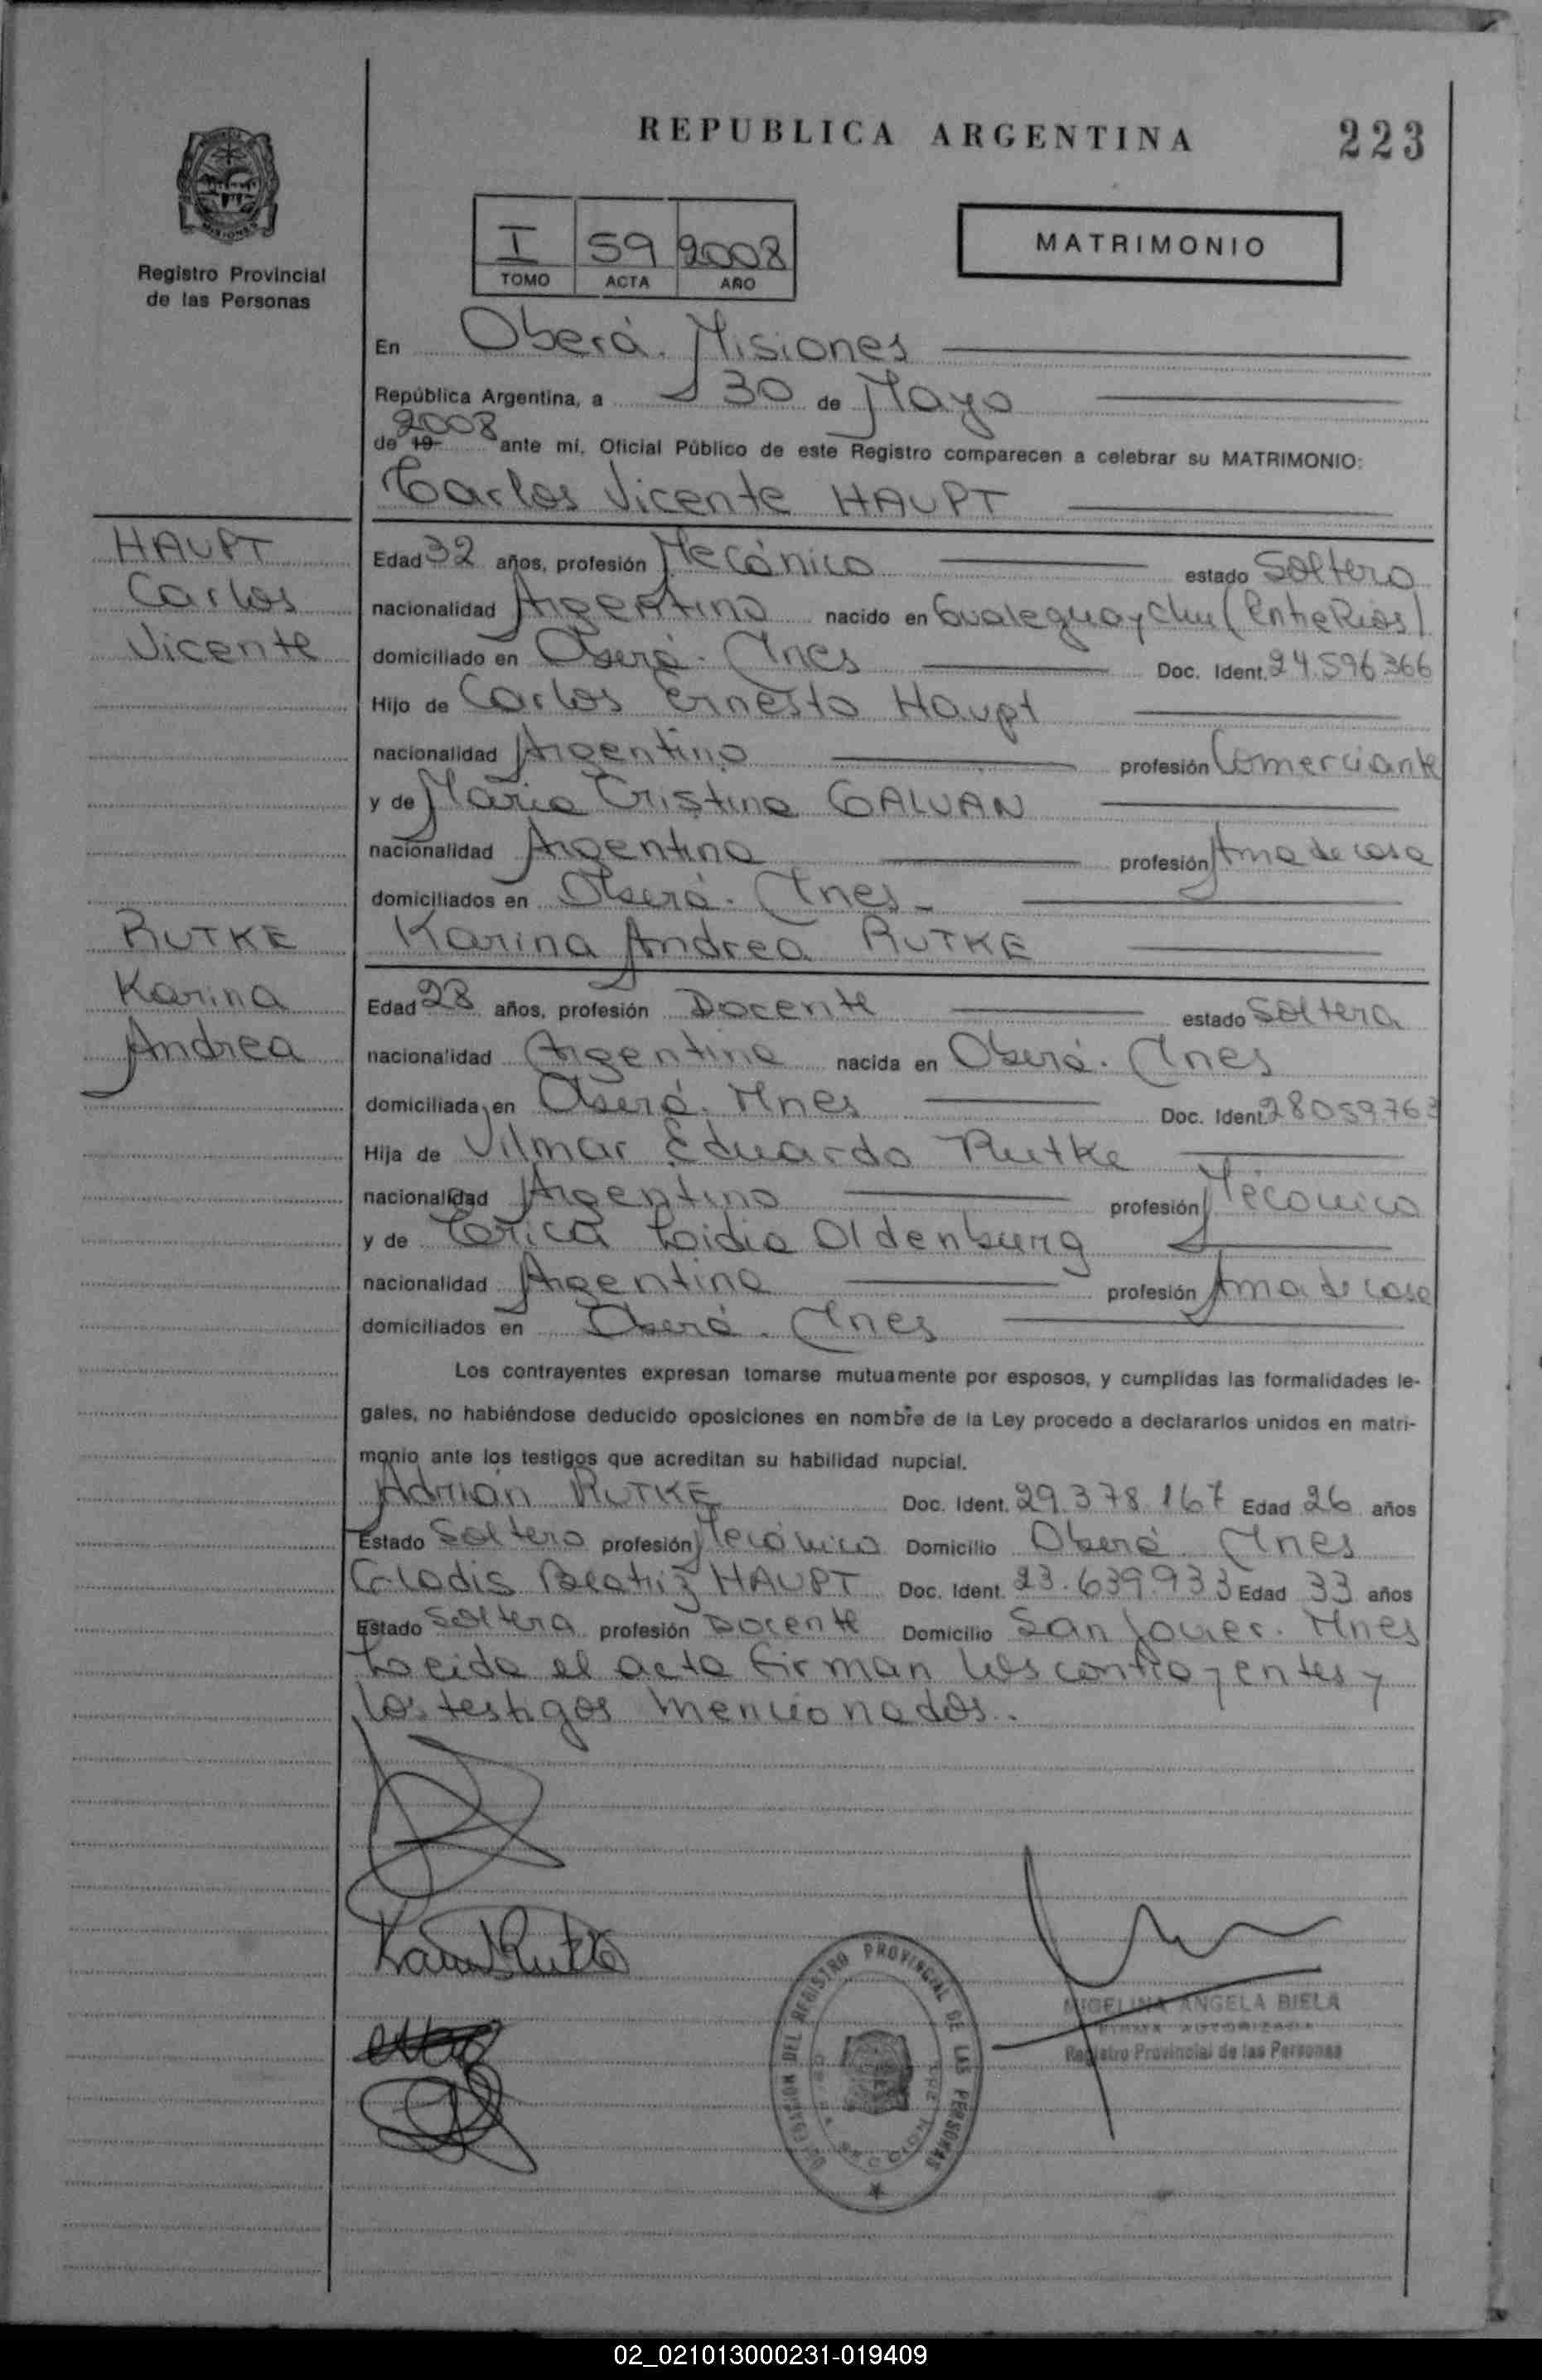 REPUBLICA ARGENTINA
223
Registro Provincial
de las Personas
I 59 2008
TOMO ACTA AÑO
MATRIMONIO
En Oberá. Misiones
República Argentina, a 30 de Mayo
de 19 2008 ante mi, Oficial Público de este Registro comparecen a celebrar su MATRIMONIO:
Carlos Vicente HAUPT
HAUPT
Carlos
Vicente
Edad 32 años, profesión Mecánico estado Soltero
nacionalidad Argentino nacido en Gualeguaychu (Entre Rios)
domiciliado en Oberá. Mnes Doc. Ident. 24.596.366
Hijo de Carlos Ernesto Haupt
nacionalidad Argentino profesión Comerciante
y de Maria Cristina GALVAN
nacionalidad Argentina profesión Ama de casa
domiciliados en Oberá. Mnes
RUTKE
Karina
Andrea
Karina Andrea RUTKE
Edad 28 años, profesión Docente estado Soltera
nacionalidad Argentina nacida en Oberá. Mnes
domiciliada en Oberá. Mnes Doc. Ident. 28059.763
Hija de Vilmar Eduardo Rutke
nacionalidad Argentino profesión Mecánico
y de Erica Lidia Oldenburg
nacionalidad Argentina profesión Ama de casa
domiciliados en Oberá. Mnes
Los contrayentes expresan tomarse mutuamente por esposos, y cumplidas las formalidades le-
gales, no habiéndose deducido oposiciones en nombre de la Ley procedo a declararlos unidos en matri-
monio ante los testigos que acreditan su habilidad nupcial.
Adrián RUTKE Doc. Ident. 29.378.167 Edad 26 años
Estado Soltero profesión Mecánico Domicilio Oberá Mnes
Gladis Beatriz HAUPT Doc. Ident. 23.639.933 Edad 33 años
Estado Soltera profesión Docente Domicilio San Javier. Mnes
Leida el acta firman los contrayentes y
los testigos mencionados.
DELEGACION DEL REGISTRO PROVINCIAL DE LAS PERSONAS
MIGELINA ANGELA BIELA
FIRMA AUTORIZADA
Registro Provincial de las Personas
02_021013000231-019409